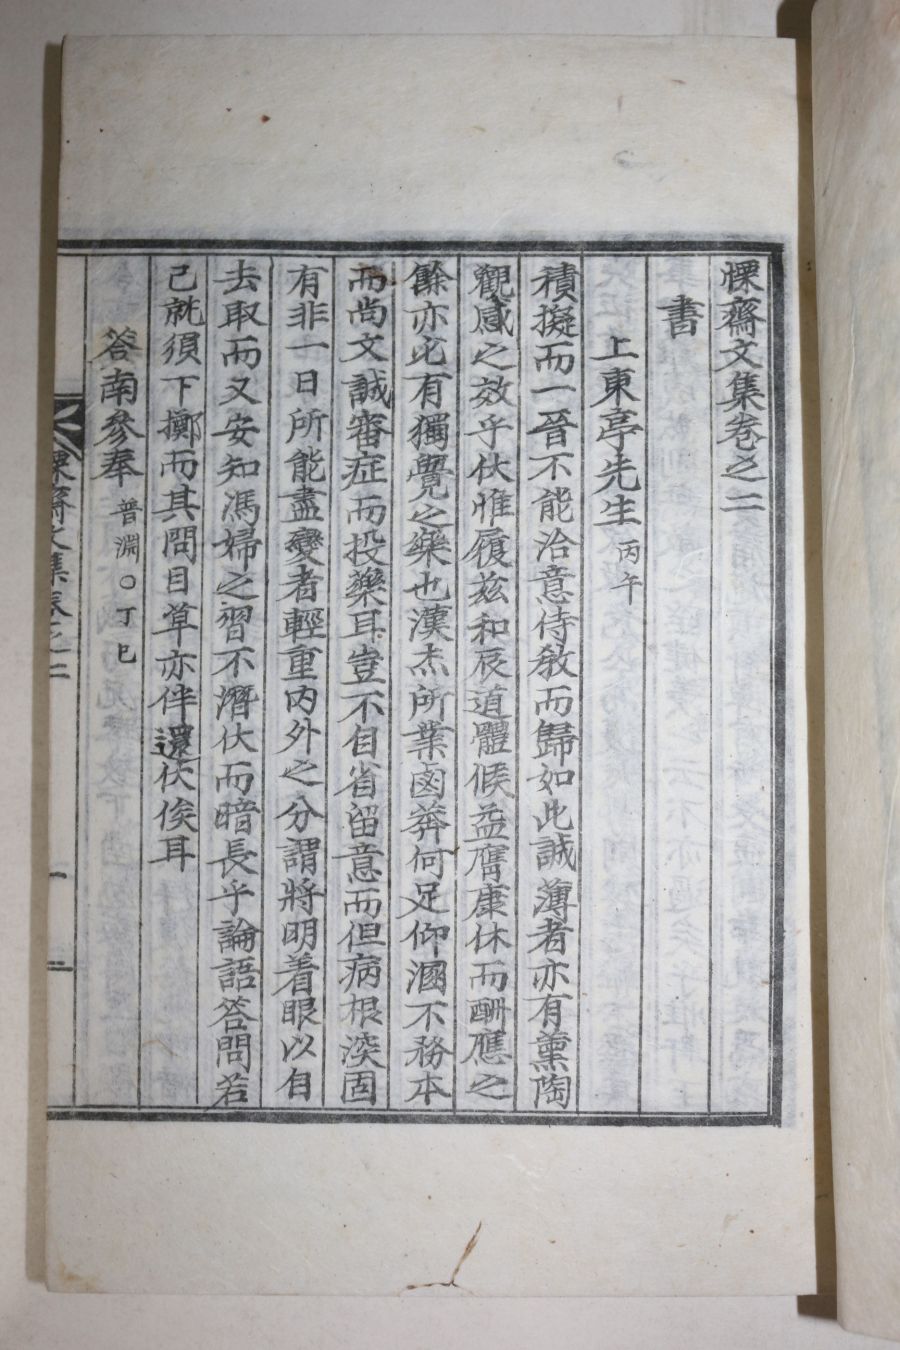 慄齋文集卷之二
書
上東亭先生 丙午
積擬而一晉不能洽意侍敎而歸如此誠薄者亦有薰陶
觀感之效乎伏惟履玆和辰道體候益膺康休而酬應之
餘亦必有獨覺之樂也漢杰所業鹵莽何足仰溷不務本
而尚文誠審症而投藥耳豈不自省留意而但病根深固
有非一日所能盡變者輕重內外之分謂將明着眼以自
去取而又安知馮婦之習不潛伏而暗長乎論語答問若
己就須下擲而其問目草亦伴還伏俟耳
答南參奉 普淵○丁巳
慄齋文集卷之二
一